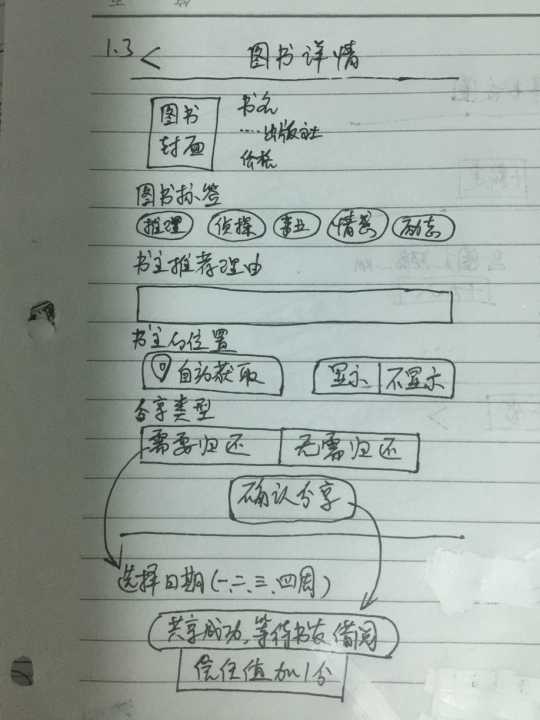 1.3 < 图书详情
图书封面
书名
....出版社
价格
图书标签
推理 侦探 事业 情感 励志
书主推荐理由
书主的位置
自动获取 显示 不显示
分享类型
需要归还 无需归还
确认分享
选择日期(一、二、三、四周)
共享成功,等待书友借阅
信任值加1分